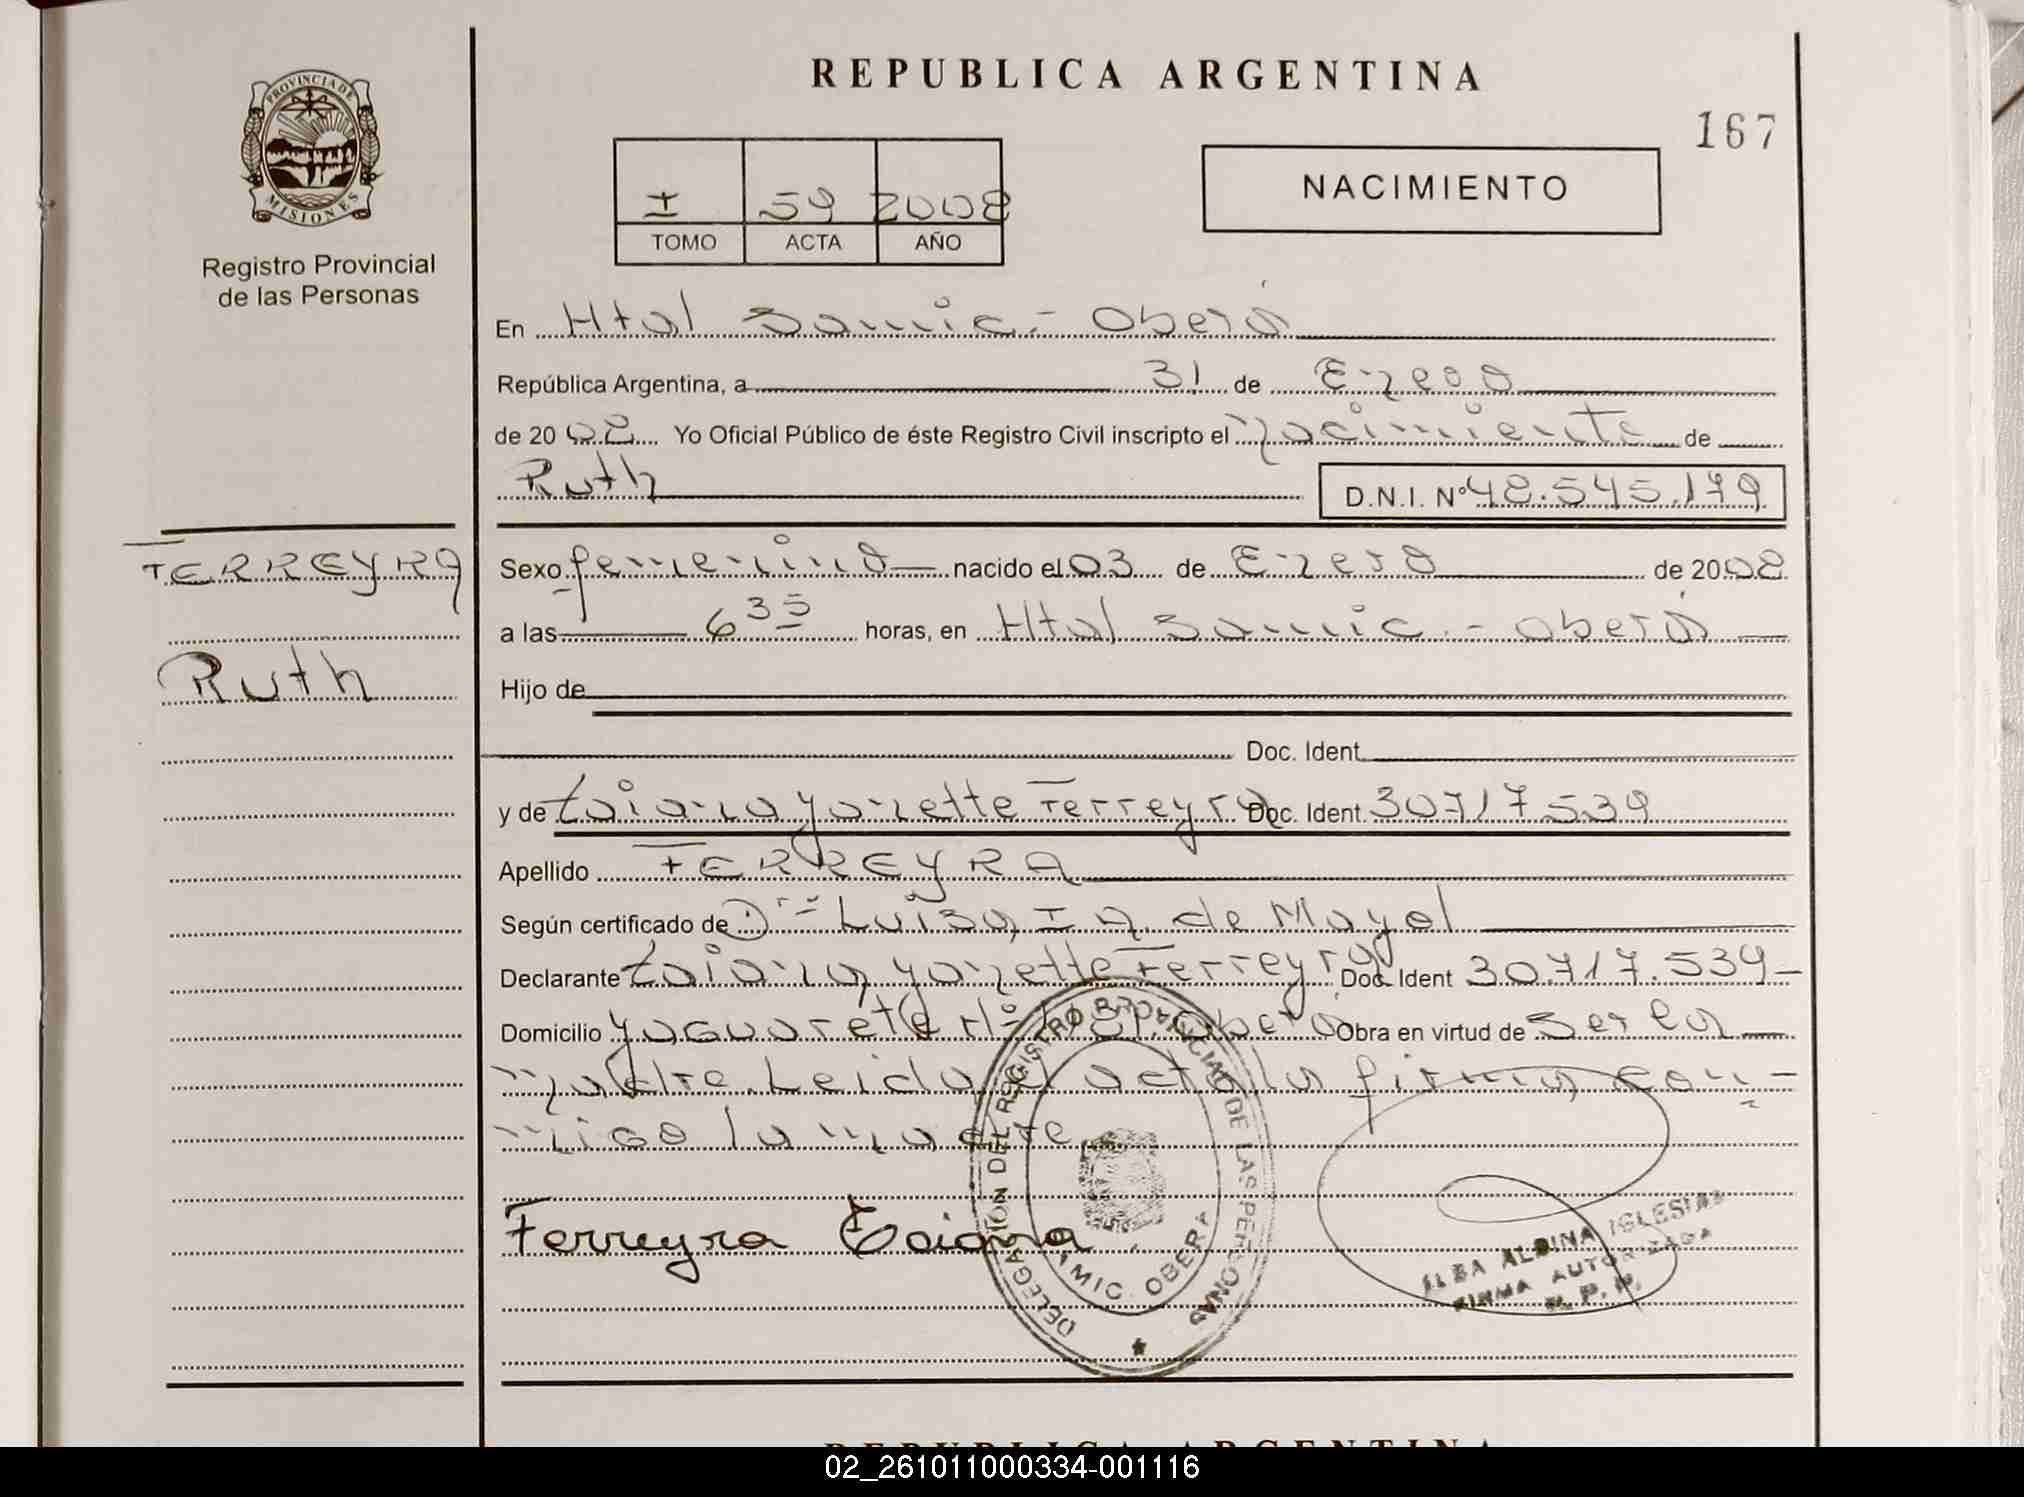 REPUBLICA ARGENTINA
167
PROVINCIA DE MISIONES
Registro Provincial
de las Personas
I 59 2008
TOMO ACTA AÑO
NACIMIENTO
En Htal Samic - Oberá
República Argentina, a 31 de Enero
de 2008 Yo Oficial Público de éste Registro Civil inscripto el nacimiento de
Ruth D.N.I. Nº 48.545.179
FERREYRA
Ruth
Sexo femenino nacido el 03 de Enero de 2008
a las 6 35 horas, en Htal Samic - Oberá
Hijo de
Doc. Ident.
y de Taiana Yanette Ferreyra Doc. Ident. 30717539
Apellido FERREYRA
Según certificado de Dra Luisa I A. de Mayol
Declarante Taiana Yanette Ferreyra Doc. Ident 30.717.539-
Domicilio Yaguareté Oberá Obra en virtud de ser la
madre. Leida el acta la firma con-
migo la madre.
Ferreyra Taiana
DELEGACION DEL REGISTRO PROVINCIAL DE LAS PERSONAS
SAMIC OBERA
ELBA ALBINA IGLESIAS
FIRMA AUTORIZADA
R.P.P.
REPUBLICA ARGENTINA
02_261011000334-001116